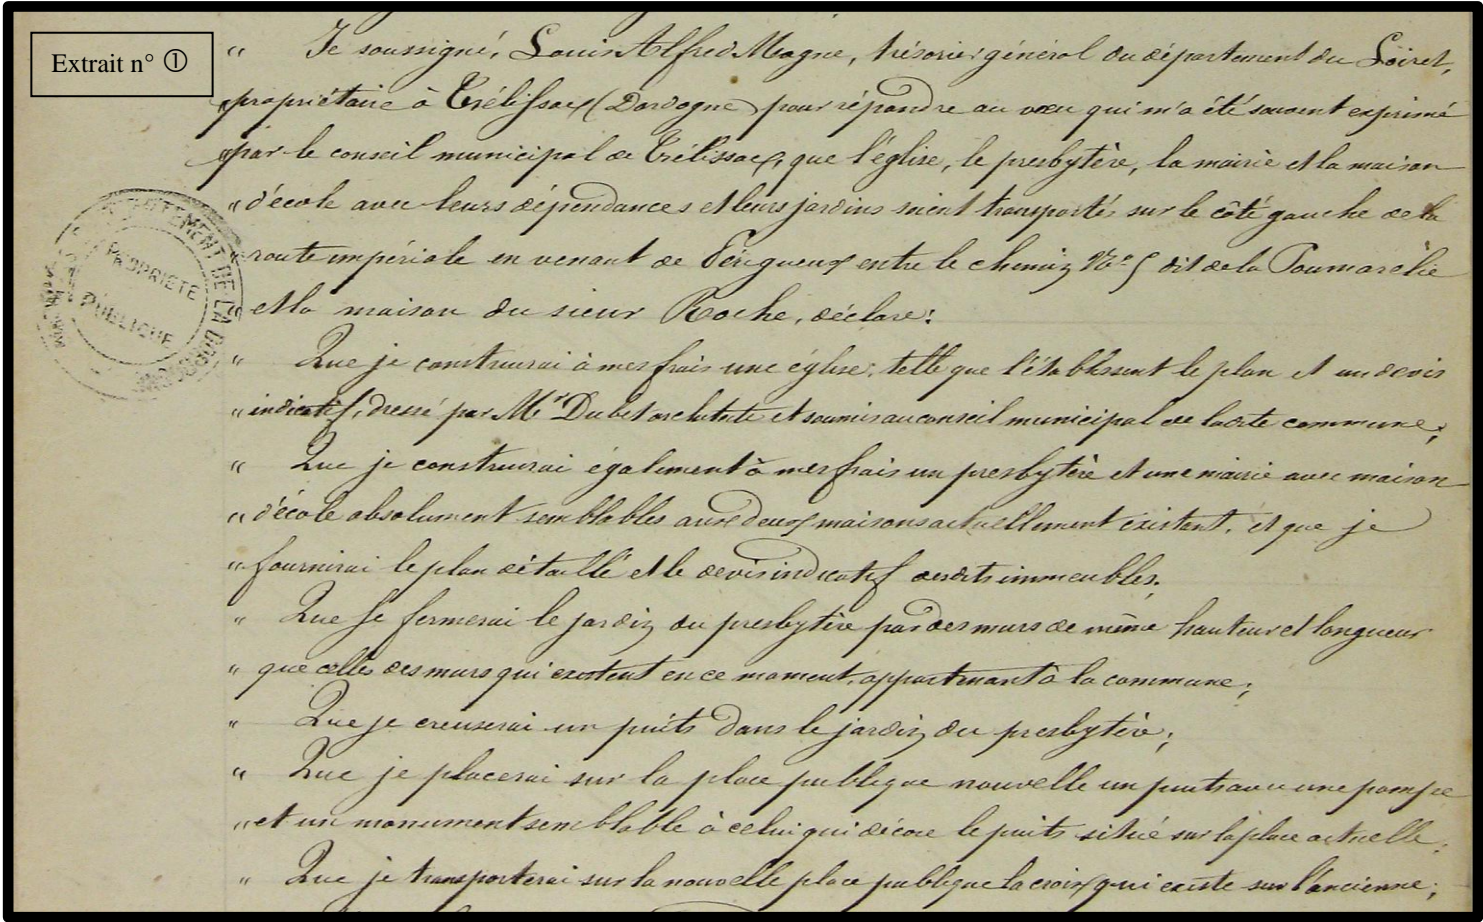 Extrait n° ①
" Je soussigné, Louis Alfred Magne, trésorier général du département du Loiret,
" propriétaire à Trélissac (Dordogne) pour répondre au vœu qui m'a été souvent exprimé
" par le conseil municipal de Trélissac, que l'église, le presbytère, la mairie et la maison
" d'école avec leurs dépendances et leurs jardins soient transportés sur le côté gauche de la
" route impériale en venant de Périgueux entre le chemin N° 5 dit de la Poumarélie
et la maison du sieur Roche, déclare:
" Que je construirai à mes frais une église, telle que l'établissent le plan et un devis
" indicatif, dressé par Mr Dubet architecte et soumis au conseil municipal de ladite commune;
" Que je construirai également à mes frais un presbytère et une mairie avec maison
" d'école absolument semblables aux deux maisons actuellement existant, et que je
" fournirai le plan détaillé et le devis indicatif desdits immeubles;
" Que je fermerai le jardin du presbytère par des murs de même hauteur et longueur
" que celles des murs qui existent en ce moment, appartenant à la commune;
" Que je creuserai un puits dans le jardin du presbytère;
" Que je placerai sur la place publique nouvelle un puits avec une pompe
" et un monument semblable à celui qui décore le puits situé sur la place actuelle;
" Que je transporterai sur la nouvelle place publique la croix qui existe sur l'ancienne;
DÉPARTEMENT DE LA DORDOGNE
PROPRIÉTÉ
PUBLIQUE